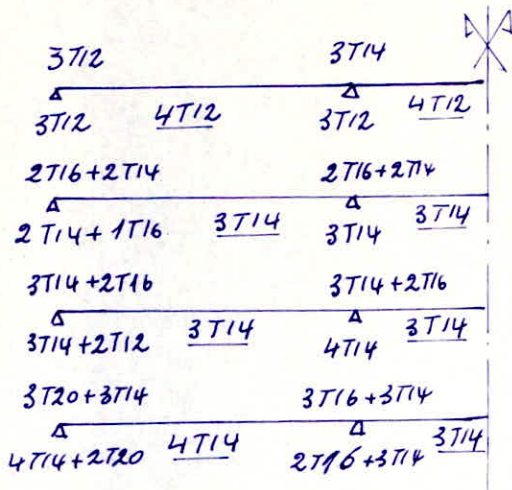 3T12 3T14
3T12 4T12 3T12 4T12
2T16+2T14 2T16+2T14
2T14+1T16 3T14 3T14 3T14
3T14+2T16 3T14+2T16
3T14+2T12 3T14 4T14 3T14
3T20+3T14 3T16+3T14
4T14+2T20 4T14 2T16+3T14 3T14